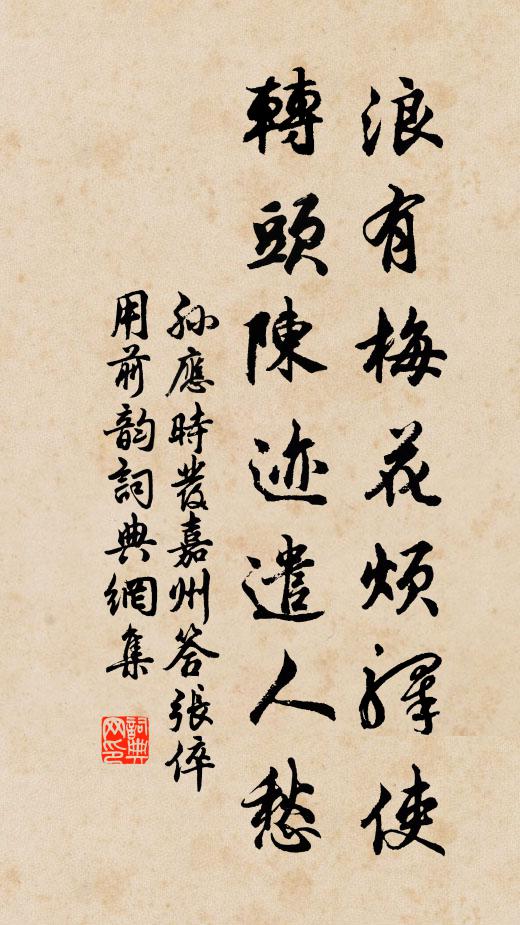 浪有梅花煩驛使
轉頭陳迹遣人愁
孫應時發嘉州答張倅
用前韵詞典網集
詞典網印